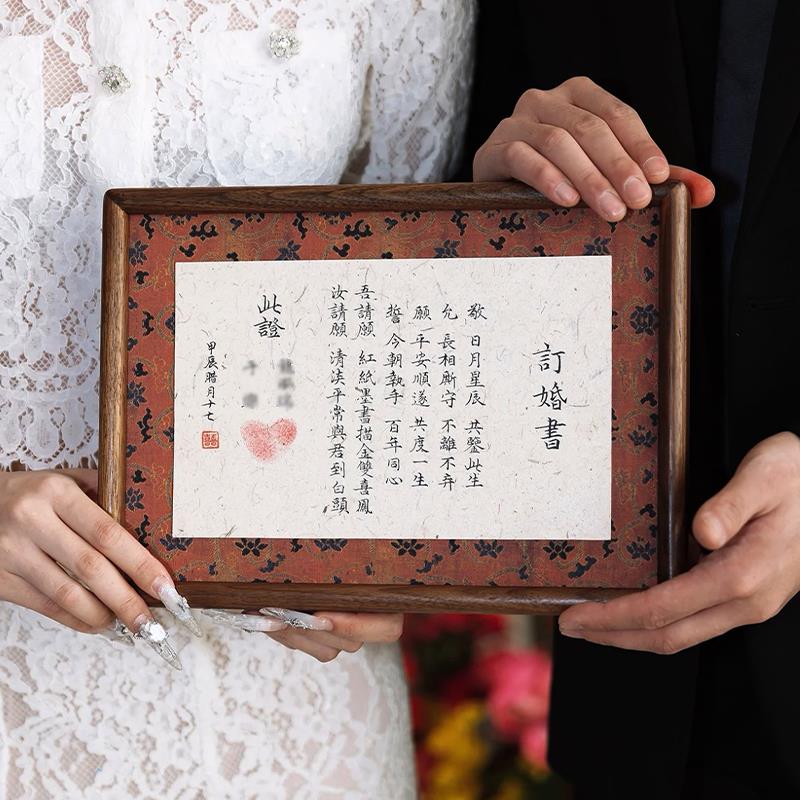 訂婚書
敬 日月星辰 共鑒此生
允 長相廝守 不離不弃
願 平安順遂 共度一生
誓 今朝執手 百年同心
吾請願 紅紙墨書描金雙喜鳳
汝請願 清淡平常與君到白頭
此證
甲辰腊月十七
囍